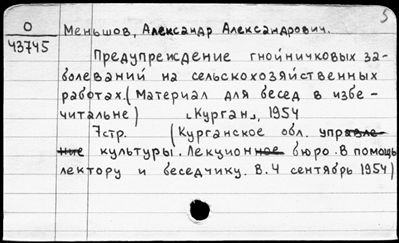 5
О
43745
Меньшов, Александр Александрович.
Предупреждение гнойничковых за-
болеваний на сельскохозяйственных
работах. (Материал для бесед в избе-
читальне) "Курган", 1954
7стр. (Курганское обл. управле-
ние культуры. Лекционное бюро. В помощь
лектору и беседчику. В.4 сентябрь 1954)